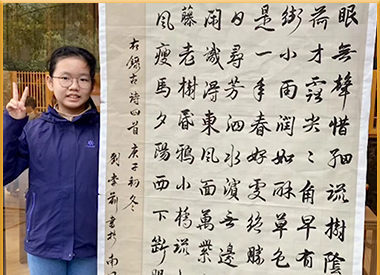 眼無聲惜細流樹陰
荷才露尖々角早有
街小雨潤如酥草色
是一年春好處絕勝
日尋芳泗水濱无邊
閒識得東風面萬紫
藤老樹昏鴉小橋流
風瘦馬夕陽西下斷腸
右錄古詩四首庚子初冬
書於南